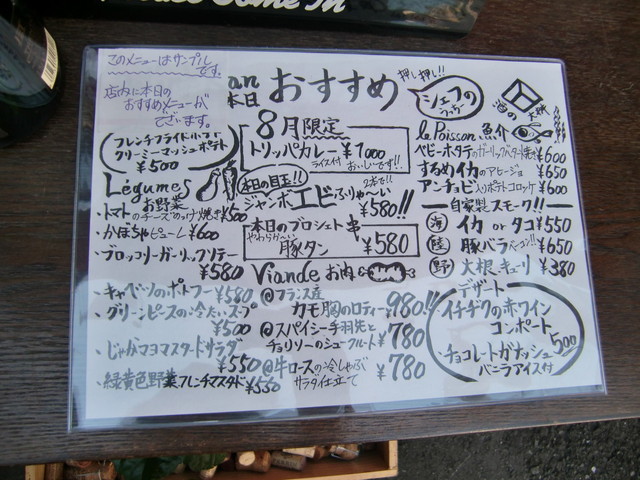 Come In
このメニューはサンプル
です。
店内に本日の
おすすめメニューが
ございます。
an
本日
おすすめ
押し押し!!
シェフの
フレンチフライドトマト
クリーミーマッシュポテト
¥500
8月限定
トリッパカレー ¥1000
ライス付
おいしいです!!
Légumes
お野菜
・トマト
のチーズのっけ焼き ¥500
・かぼちゃピューレ ¥600
・ブロッコリーガーリックソテー
¥580
・キャベツのポトフー ¥580
・グリーンピースの冷たいスープ
¥500
・じゃがマヨマスタードサラダ
¥550
・緑黄色野菜フレンチマスタード ¥550
本日の目玉!!
2本で!!
ジャンボエビふりゃーい
¥580!!
本日のブロシェット 串
やわらか〜い
豚タン ¥580
Viande お肉
@フランス産
カモ胸のロティー 980!!
@スパイシー手羽先と
チョリソーのシュークルート ¥780
@牛ロースの冷しゃぶ
サラダ仕立て ¥780
la Poisson 魚介
ベビーホタテのガーリックバター焼き ¥600
するめイカのアヒージョ ¥650
アンチョビ入りポテトコロッケ ¥600
自家製スモーク!!
海 イカ or タコ ¥550
陸 豚バラベーコン!! ¥650
野 大根、キューリ ¥380
デザート
イチヂクの赤ワイン
コンポート
・チョコレートガナッシュ 500
バニラアイス付